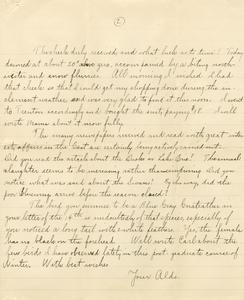 (2)
The check duly received and what luck as to time! Today
dawned at about 20° above zero, accompanied by a biting north-
wester and snow flurries. All morning I wished I had
that check so that I could get my shopping done during the in-
clement weather and was very glad to find it this noon. I went
to Trenton accordingly and bought the suit, paying $18. I will
write Mama about it more fully.
The many newspapers received and read with great inter-
est; affairs in the East are certainly being actively carried out.
Did you read the article about the Snake in Lake Erie? The animal
slaughter seems to be increasing rather than diminishing. Did you
notice what was said about the
for Blooming arrest before the season closed?
The bird you surmise to be a Blue Gray Gnatcatcher in
your letter of the 14th is undoubtedly of that species, especially if
you noticed a long tail with a white feather. Yes, the female
has no black on the forehead. Will write Carl about the
few birds I have observed lately in this post-graduate course of
Winter. With best wishes
Your Aldo.